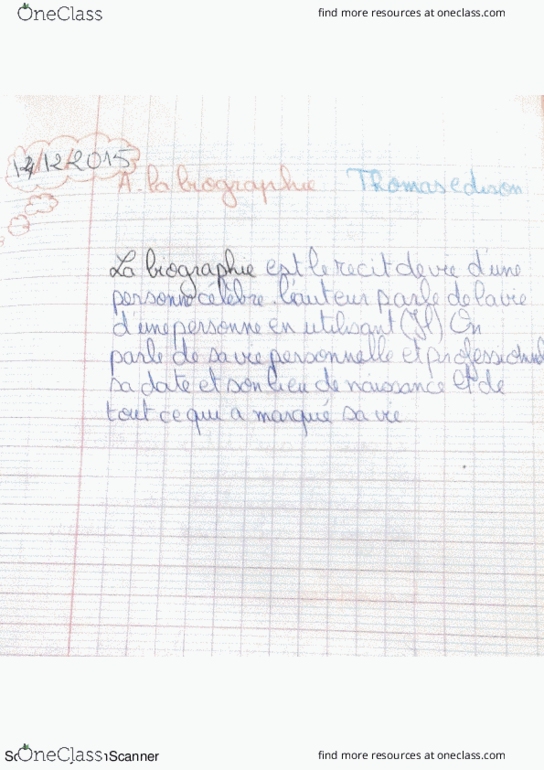 OneClass
find more resources at oneclass.com
14/12/2015
A. La biographie Thomas edison
La biographie est le recit de vie d'une
personne célèbre. l'auteur parle de la vie
d'une personne en utilisant (Il) On
parle de sa vie personnelle et professionnel
sa date et son lieu de naissance et de
tout ce qui a marqué sa vie
OneClass Scanner
find more resources at oneclass.com